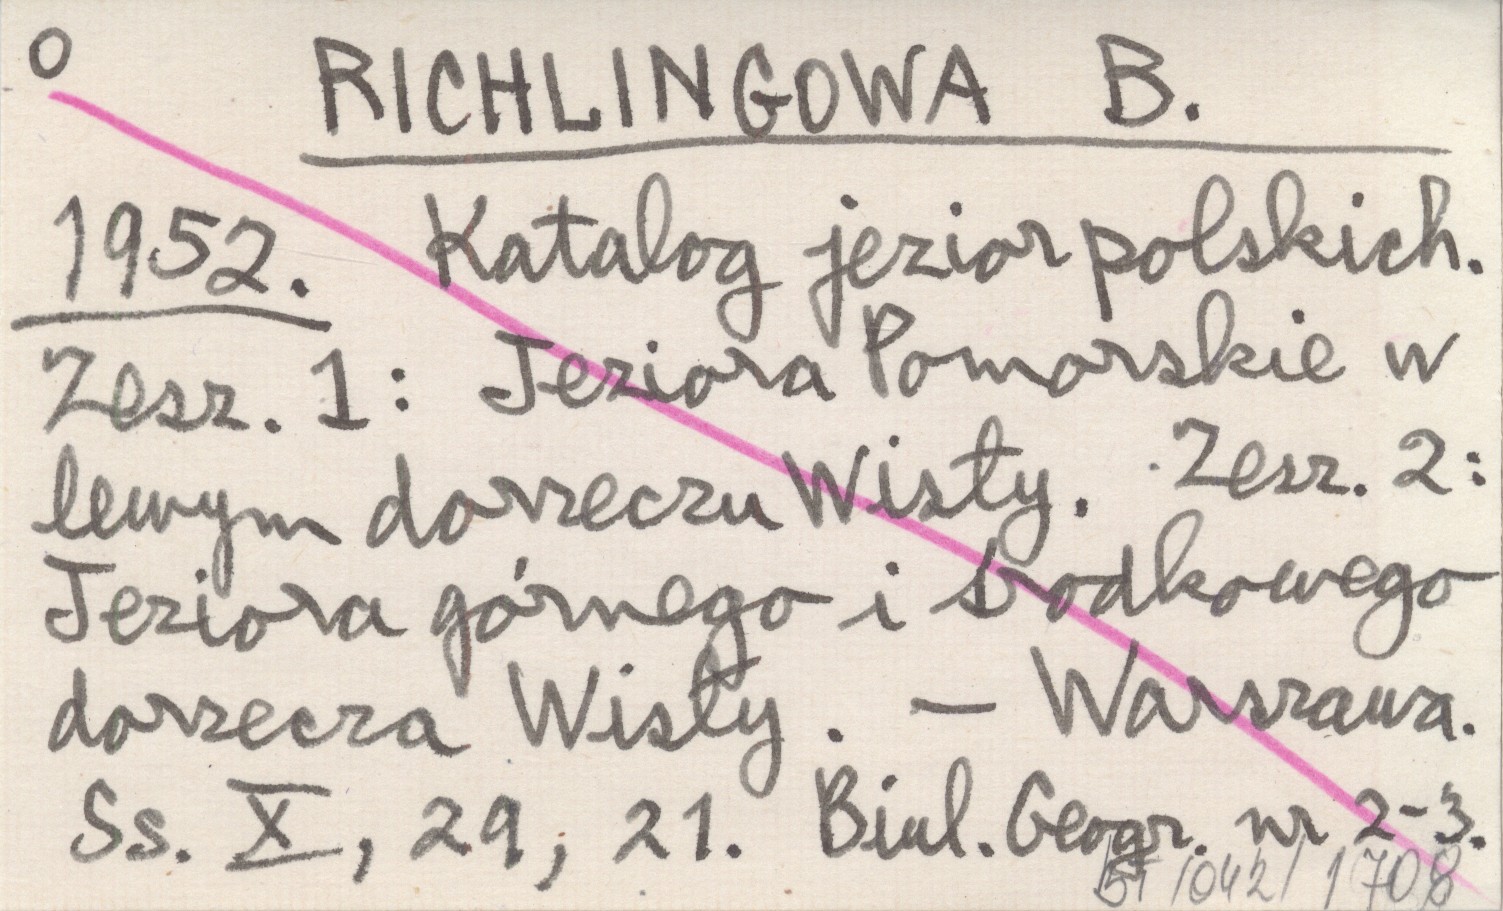 O
RICHLINGOWA B.
1952. Katalog jezior polskich.
Zesz. 1: Jeziora Pomorskie w
lewym dorzeczu Wisły. Zesz. 2:
Jeziora górnego i środkowego
dorzecza Wisły. — Warszawa.
Ss. X, 29, 21. Biul. Geogr. nr 2-3.
/042/ 1708